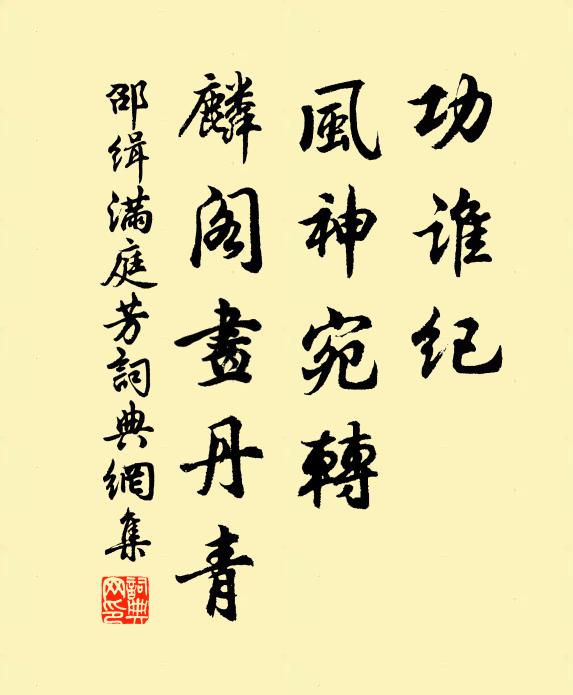 功谁纪
風神宛轉
麟阁畫丹青
邵缉滿庭芳詞典網集
詞典
网印